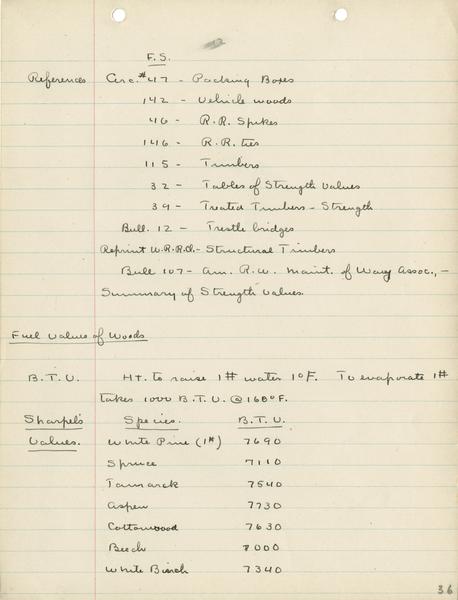 F.S.
References Circ. #47 - Packing Boxes
142 - Vehicle woods
46 - R.R. Spikes
146 - R.R. ties
115 - Timbers
32 - Tables of Strength Values
39 - Treated Timbers - Strength
Bull. 12 - Trestle bridges
Reprint - Structural Timbers
Bull 107 - Am. R.W. Maint. of Way Assoc., -
Summary of Strength Values.
Fuel Values of Woods
B.T.U. Ht. to raise 1# water 1°F. To evaporate 1#
takes 1000 B.T.U. @ 168°F.
Sharpel's Species. B.T.U.
Values. White Pine (1#) 7690
Spruce 7110
Tamarack 7540
Aspen 7730
Cottonwood 7630
Beech 7000
White Birch 7340
36